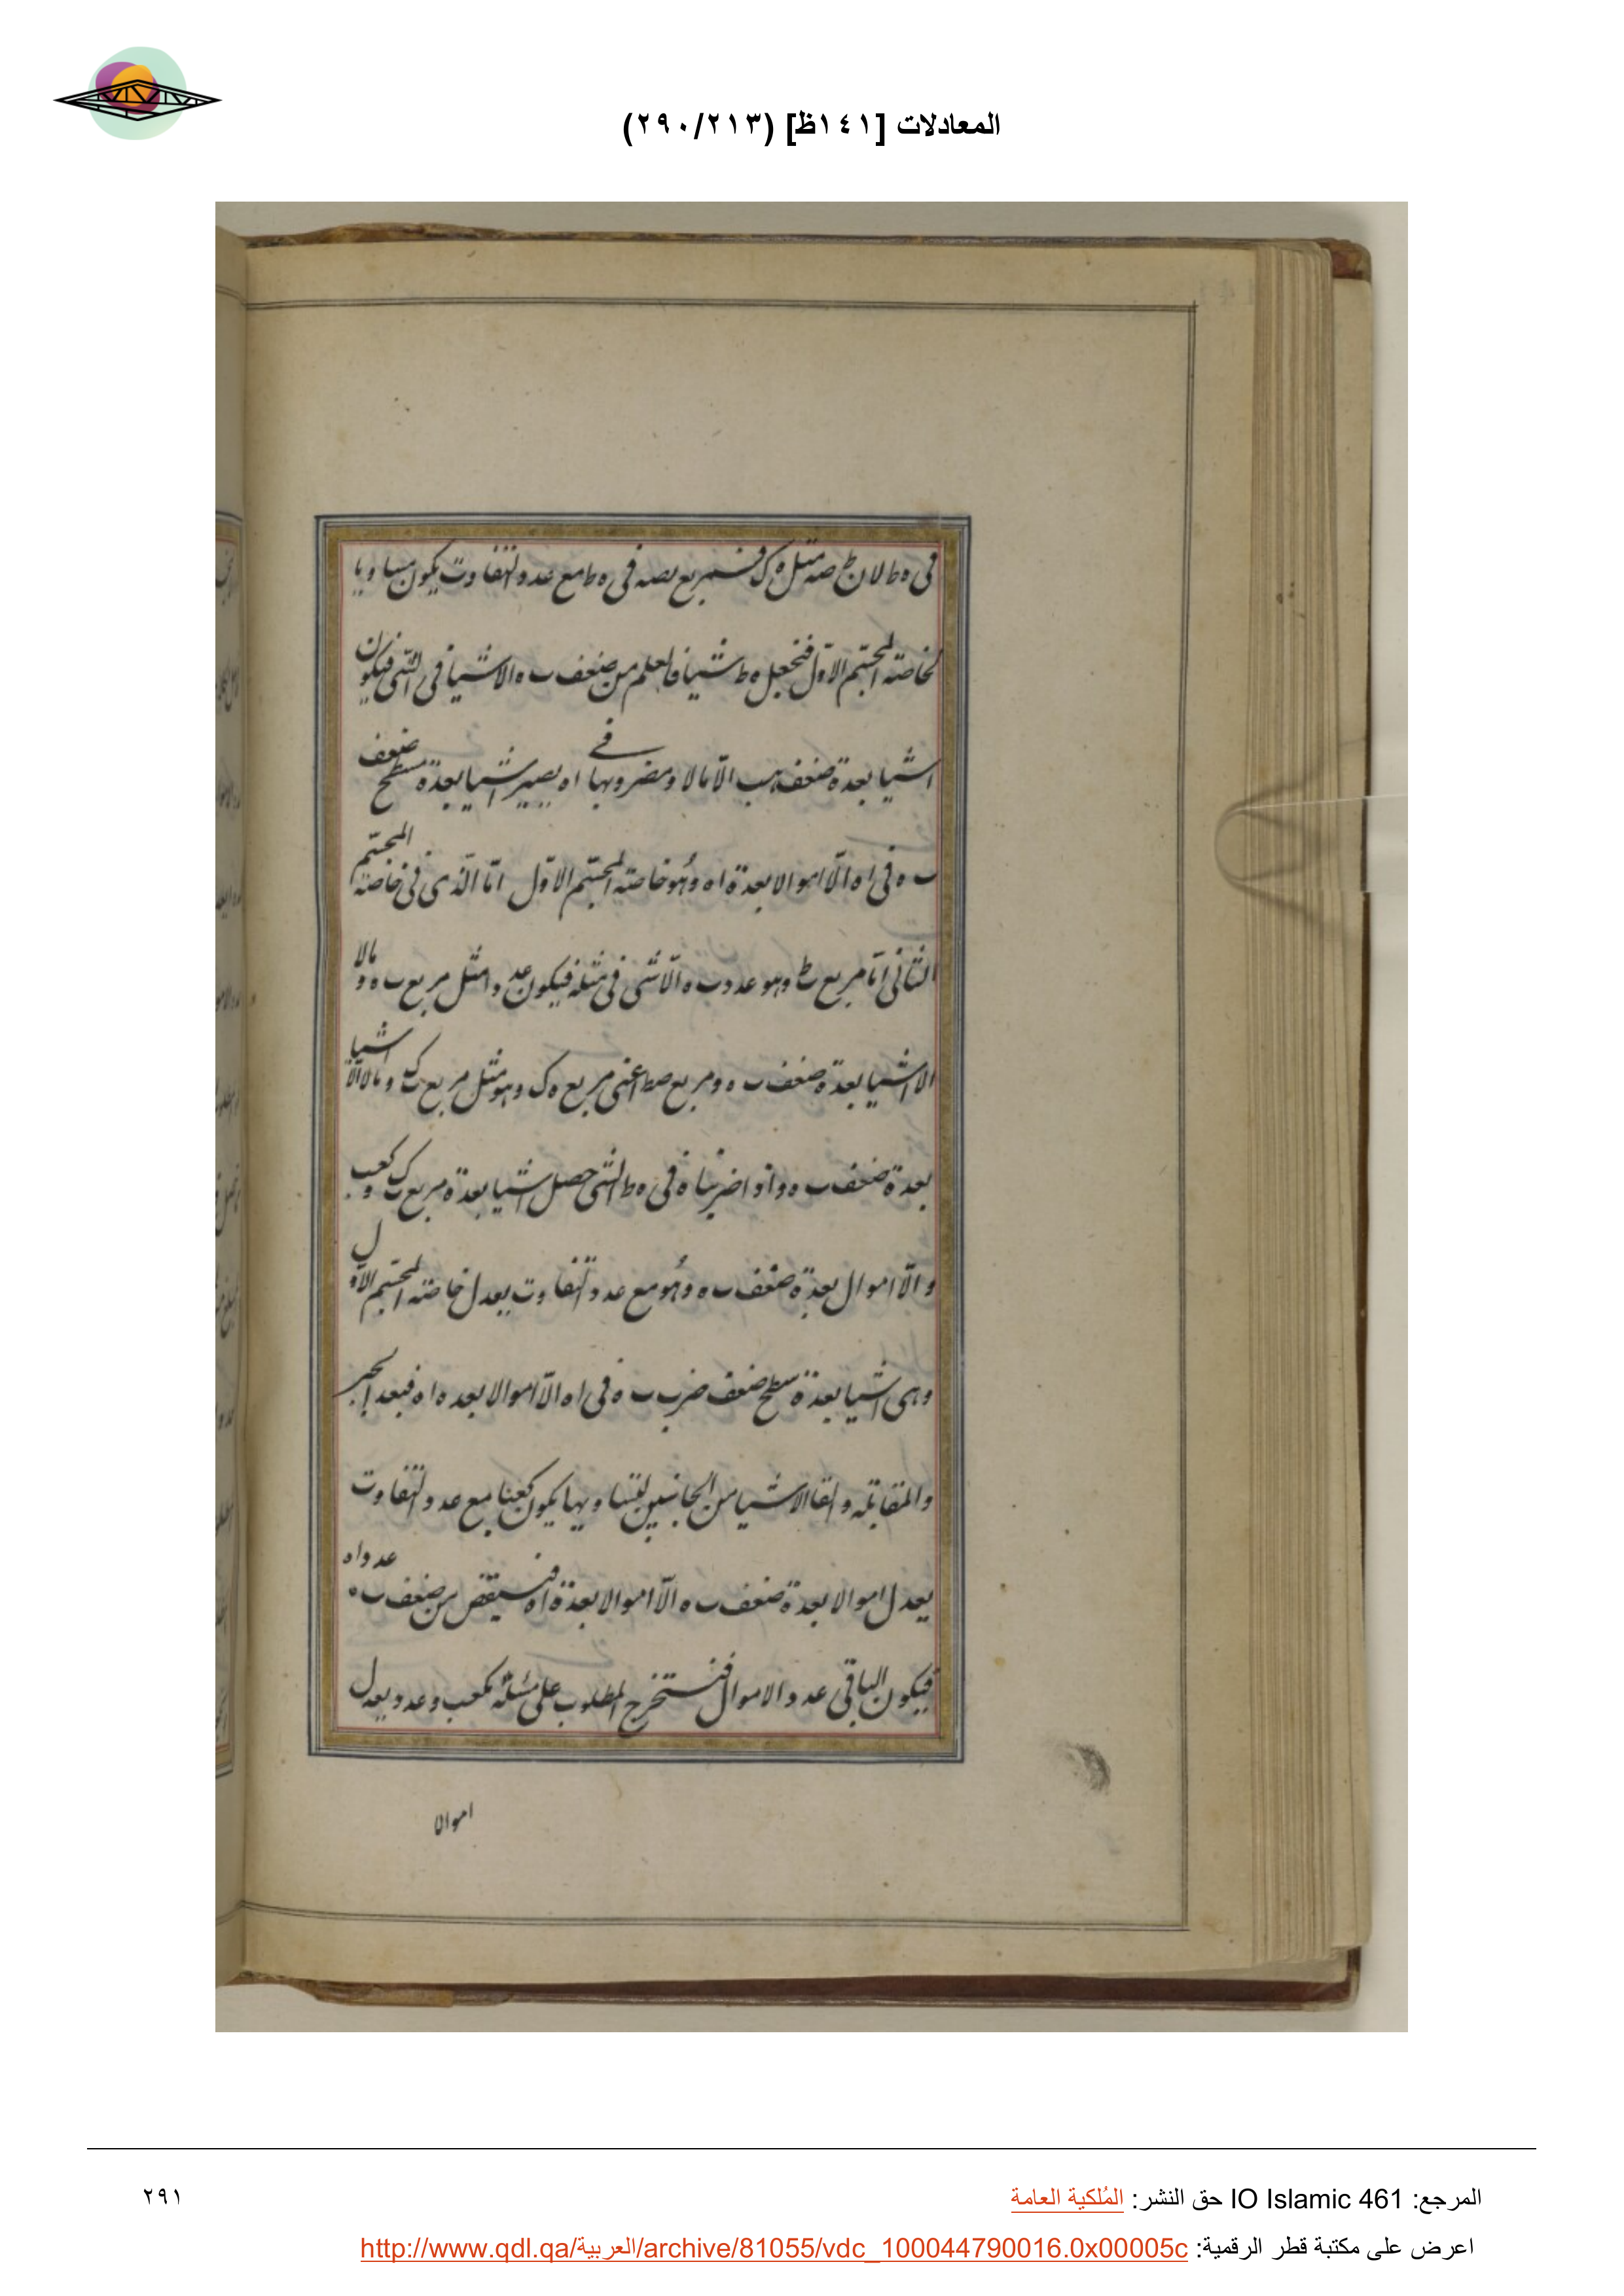 المعادلات [١٤١ظ] (٢٩٠/٢١٣)
فى ه ط لان ط صه مثل ه ك فمربع بصه فى ه ط مع عدد التفاوت يكون مساويا
لخاصة المجسم الاول فنجعل ه ط شيئا فا لعلم من ضعف ب ه الا شيئا فى الشى فيكون
اشيا بعدة ضعف ه ب الا مالا ومضروبها فى اه يصير اشيا بعدة مسطح ضعف
ب ه فى اه الا اموالا بعدة اه وهو خاصة المجسم الاول اما الذى فى خاصة المجسم
الثانى اما مربع ط وهو عدد ب ه الا شى فى مثله فيكون عددا مثل مربع ب ه و مالا
الا اشيا بعدة ضعف ب ه ومربع صط اعنى مربع ه ك وهو مثل مربع ك و مالا الا اشيا
بعدة ضعف ب ه واذا ضربناه فى ه ط الشى حصل اشيا بعدة مربع ك و كعب
والا اموال بعدة ضعف ب ه وهو مع عدد التفاوت يعدل خاصة المجسم الاول
وهى اشيا بعدة سطح ضعف ضرب ب ه فى اه الا اموالا بعده اه فبعد الجبر
والمقابلة والقا الاشيا من الجانبين لتساويها يكون كعبا مع عدد التفاوت
يعدل اموالا بعدة ضعف ب ه الا اموالا بعدة اه فينقص من ضعف ب ه عدد اه
فيكون الباقى عدد الاموال فنستخرج المطلوب على مسئلة كعب وعدد يعدل
اموالا
المرجع: IO Islamic 461 حق النشر: المُلكية العامة
٢٩١
اعرض على مكتبة قطر الرقمية: http://www.qdl.qa/العربية/archive/81055/vdc_100044790016.0x00005c